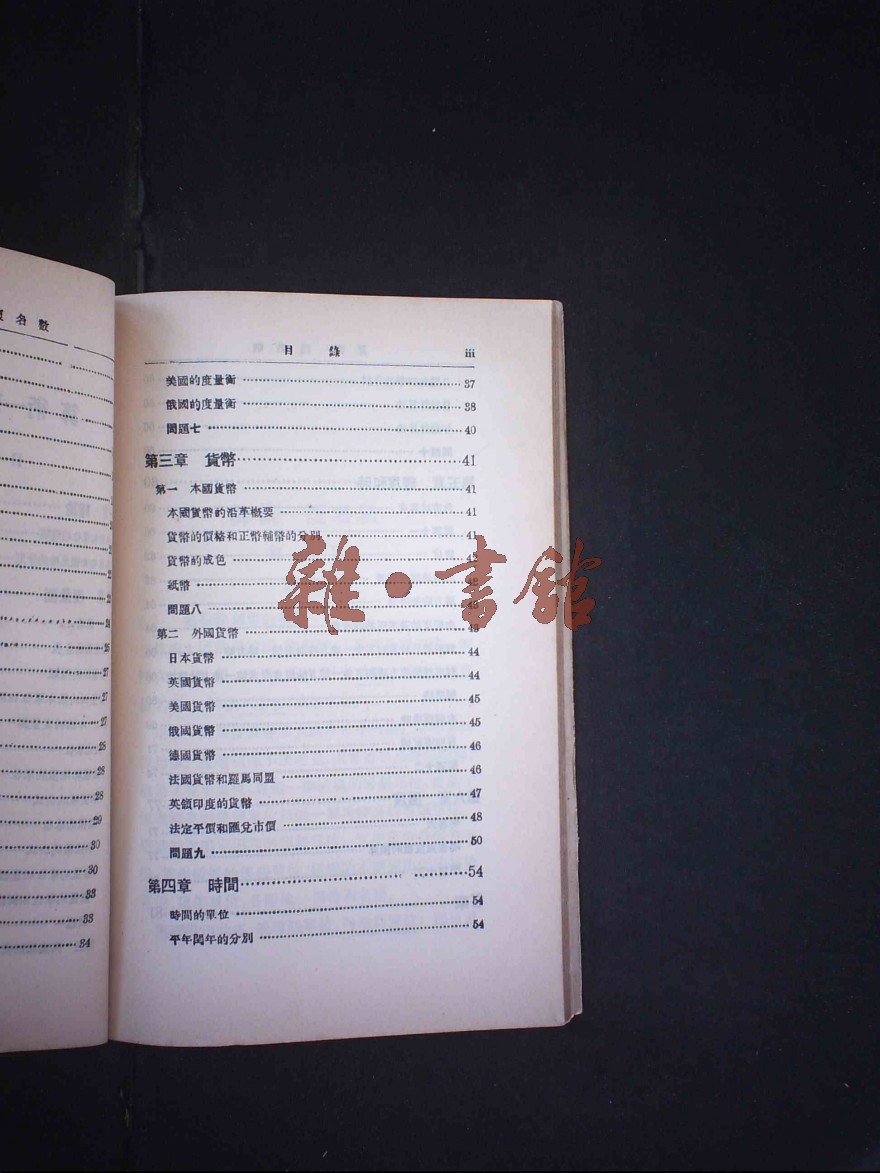 名數
27
27
28
28
28
29
30
30
33
33
34
目錄 iii
美國的度量衡 37
俄國的度量衡 38
問題七 40
第三章 貨幣 41
第一 本國貨幣 41
本國貨幣的沿革概要 41
貨幣的價格和正幣輔幣的分別 41
貨幣的成色
紙幣 42
問題八 43
第二 外國貨幣 43
日本貨幣 44
英國貨幣 44
美國貨幣 45
俄國貨幣 45
德國貨幣 46
法國貨幣和羅馬同盟 46
英領印度的貨幣 47
法定平價和匯兌市價 48
問題九 50
第四章 時間 54
時間的單位 54
平年閏年的分別 54
雜·書館